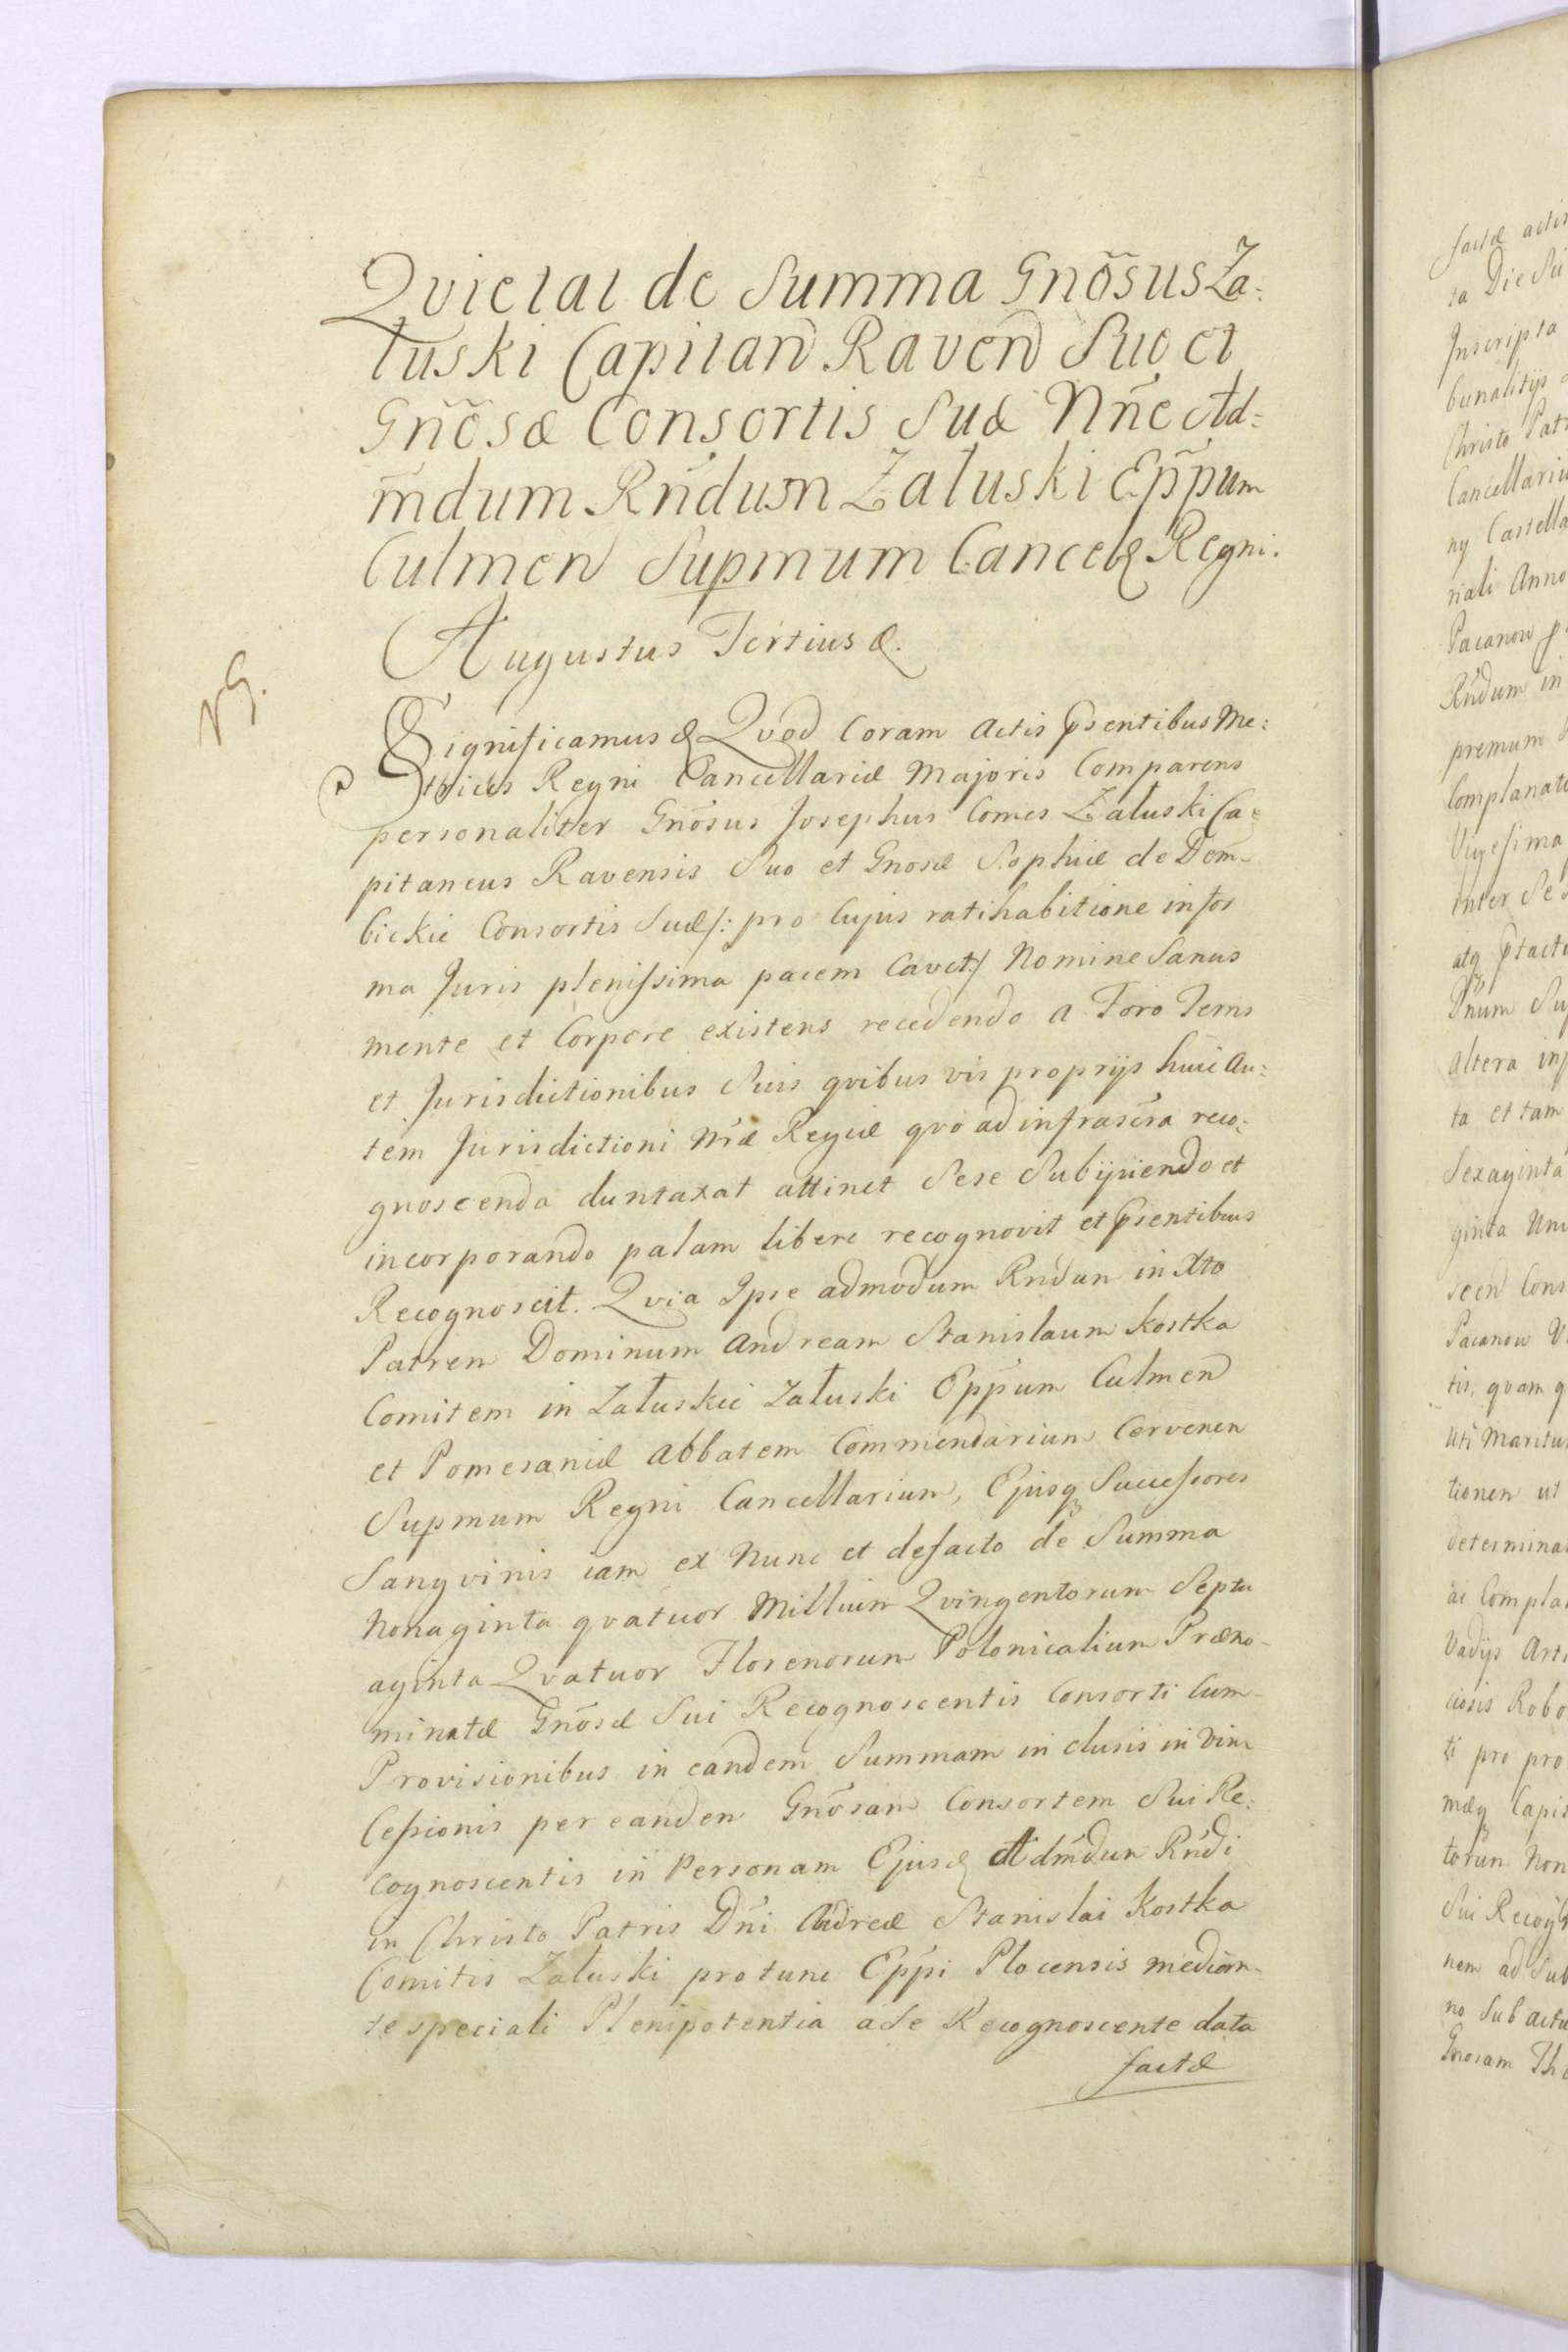 Qvietat de Summa Gnõsus Za:
łuski Capitan Raven Suo et
Gnõsæ Consortis Suæ Nñe Ad:
m̃dum Rñdum Załuski Ep̃pum
Culmen Supmum Cancel Regni.
Augustus Tertius &.
Significamus & Qvod Coram Actis Psentibus Me:
trices Regni Cancellariæ Majoris Comparens
personaliter Gnõsus Josephus Comes Załuski Ca=
pitaneus Ravensis Suo et Gnosæ Sophiæ de Dem-
bickie Consortis Suæ /: pro Cujus ratihabitione in for
ma Juris plenissima pacem Cavet :/ Nomine Sanus
mente et Corpore existens recedendo a Foro Terris
et Jurisdictionibus Suis qvibus vis proprijs huic au:
tem Jurisdictioni Nræ Regiæ qvo ad infrascra reco:
gnoscenda duntaxat attinet Sese Subijciendo et
incorporando palam libere recognovit et Psentibus
Recognoscit. Qvia Ipse admodum Rndum in Xto
Patrem Dominum Andream Stanislaum Kostka
Comitem in Załuskie Załuski Eppum Culmen
et Pomesaniæ Abbatem Commendarium Cervenen
Supmum Regni Cancellarium, Ejusq Successores
Sangvinis iam ex Nunc et defacto de Summa
Nonaginta qvatuor Millium Qvingentorum Septu
aginta Qvatuor Florenorum Polonicalium Præno-
minatæ Gnõsæ Sui Recognoscentis Consorti Cum
Provisionibus in eandem Summam in clusis in Vim
Cessionis per eandem Gnõsam Consortem Sui Re:
cognoscentis in Personam Ejusd Admdum Rndi
in Christo Patris Dni Andreæ Stanislai Kostka
Comitis Załuski pro tunc Eppi Plocensis median-
te speciali Plenipotentia a Se Recognoscente data
factæ
NG.
factæ
ta Die
Inscripta
bunalitijs
Christo Pat
Cancellariu
ny Castella
riali Anno
Pacanow
Rndum in
premum
Complanat
Vigesima
inter Se
atq
Dnum Su
altera in
ta et tam
Sexaginta
ginta
scen Cons
Pacanow
tis, qvam q
uti Maritu
tionem ut
determina
ac Compla
Vadijs
Robo
ti pro pro
Capi
torum Non
Sui Recog
nem ad Sub
no Sub actu
Gnosam Th